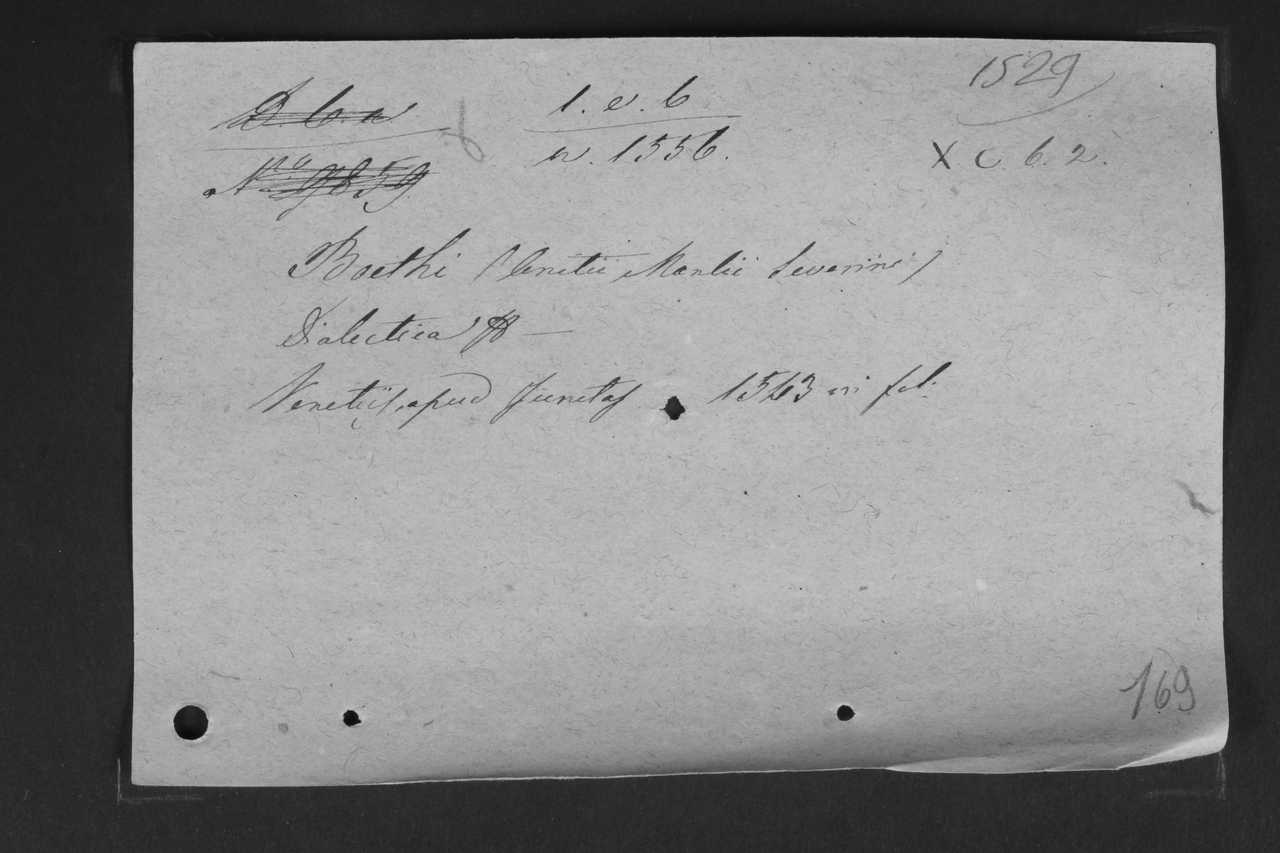 1529
D. b. a
1. e. b
No 9859
n. 1556.
X C. 6. 2.
Boethi (Anitii Manlii Severini)
Dialectica
Venetiis, apud Juntas 1543 in fol.
169